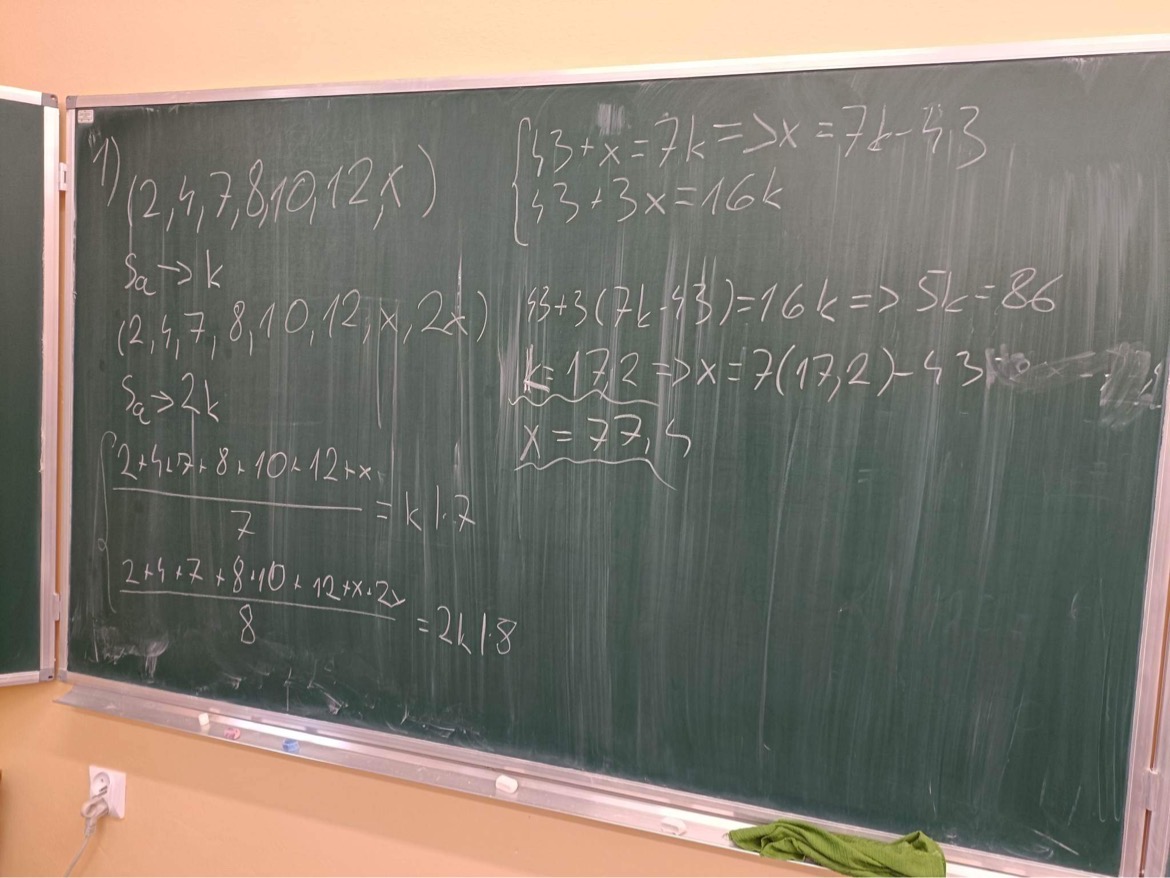 1) (2,4,7,8,10,12,x)
Sa → k
(2,4,7,8,10,12,x,2x)
Sa → 2k
{ (2+4+7+8+10+12+x)/7 = k |·7
(2+4+7+8+10+12+x+2x)/8 = 2k |·8
{ 43+x=7k => x=7k-43
43+3x=16k
43+3(7k-43)=16k => 5k=86
k=17,2 => x=7(17,2)-43
x=77,4